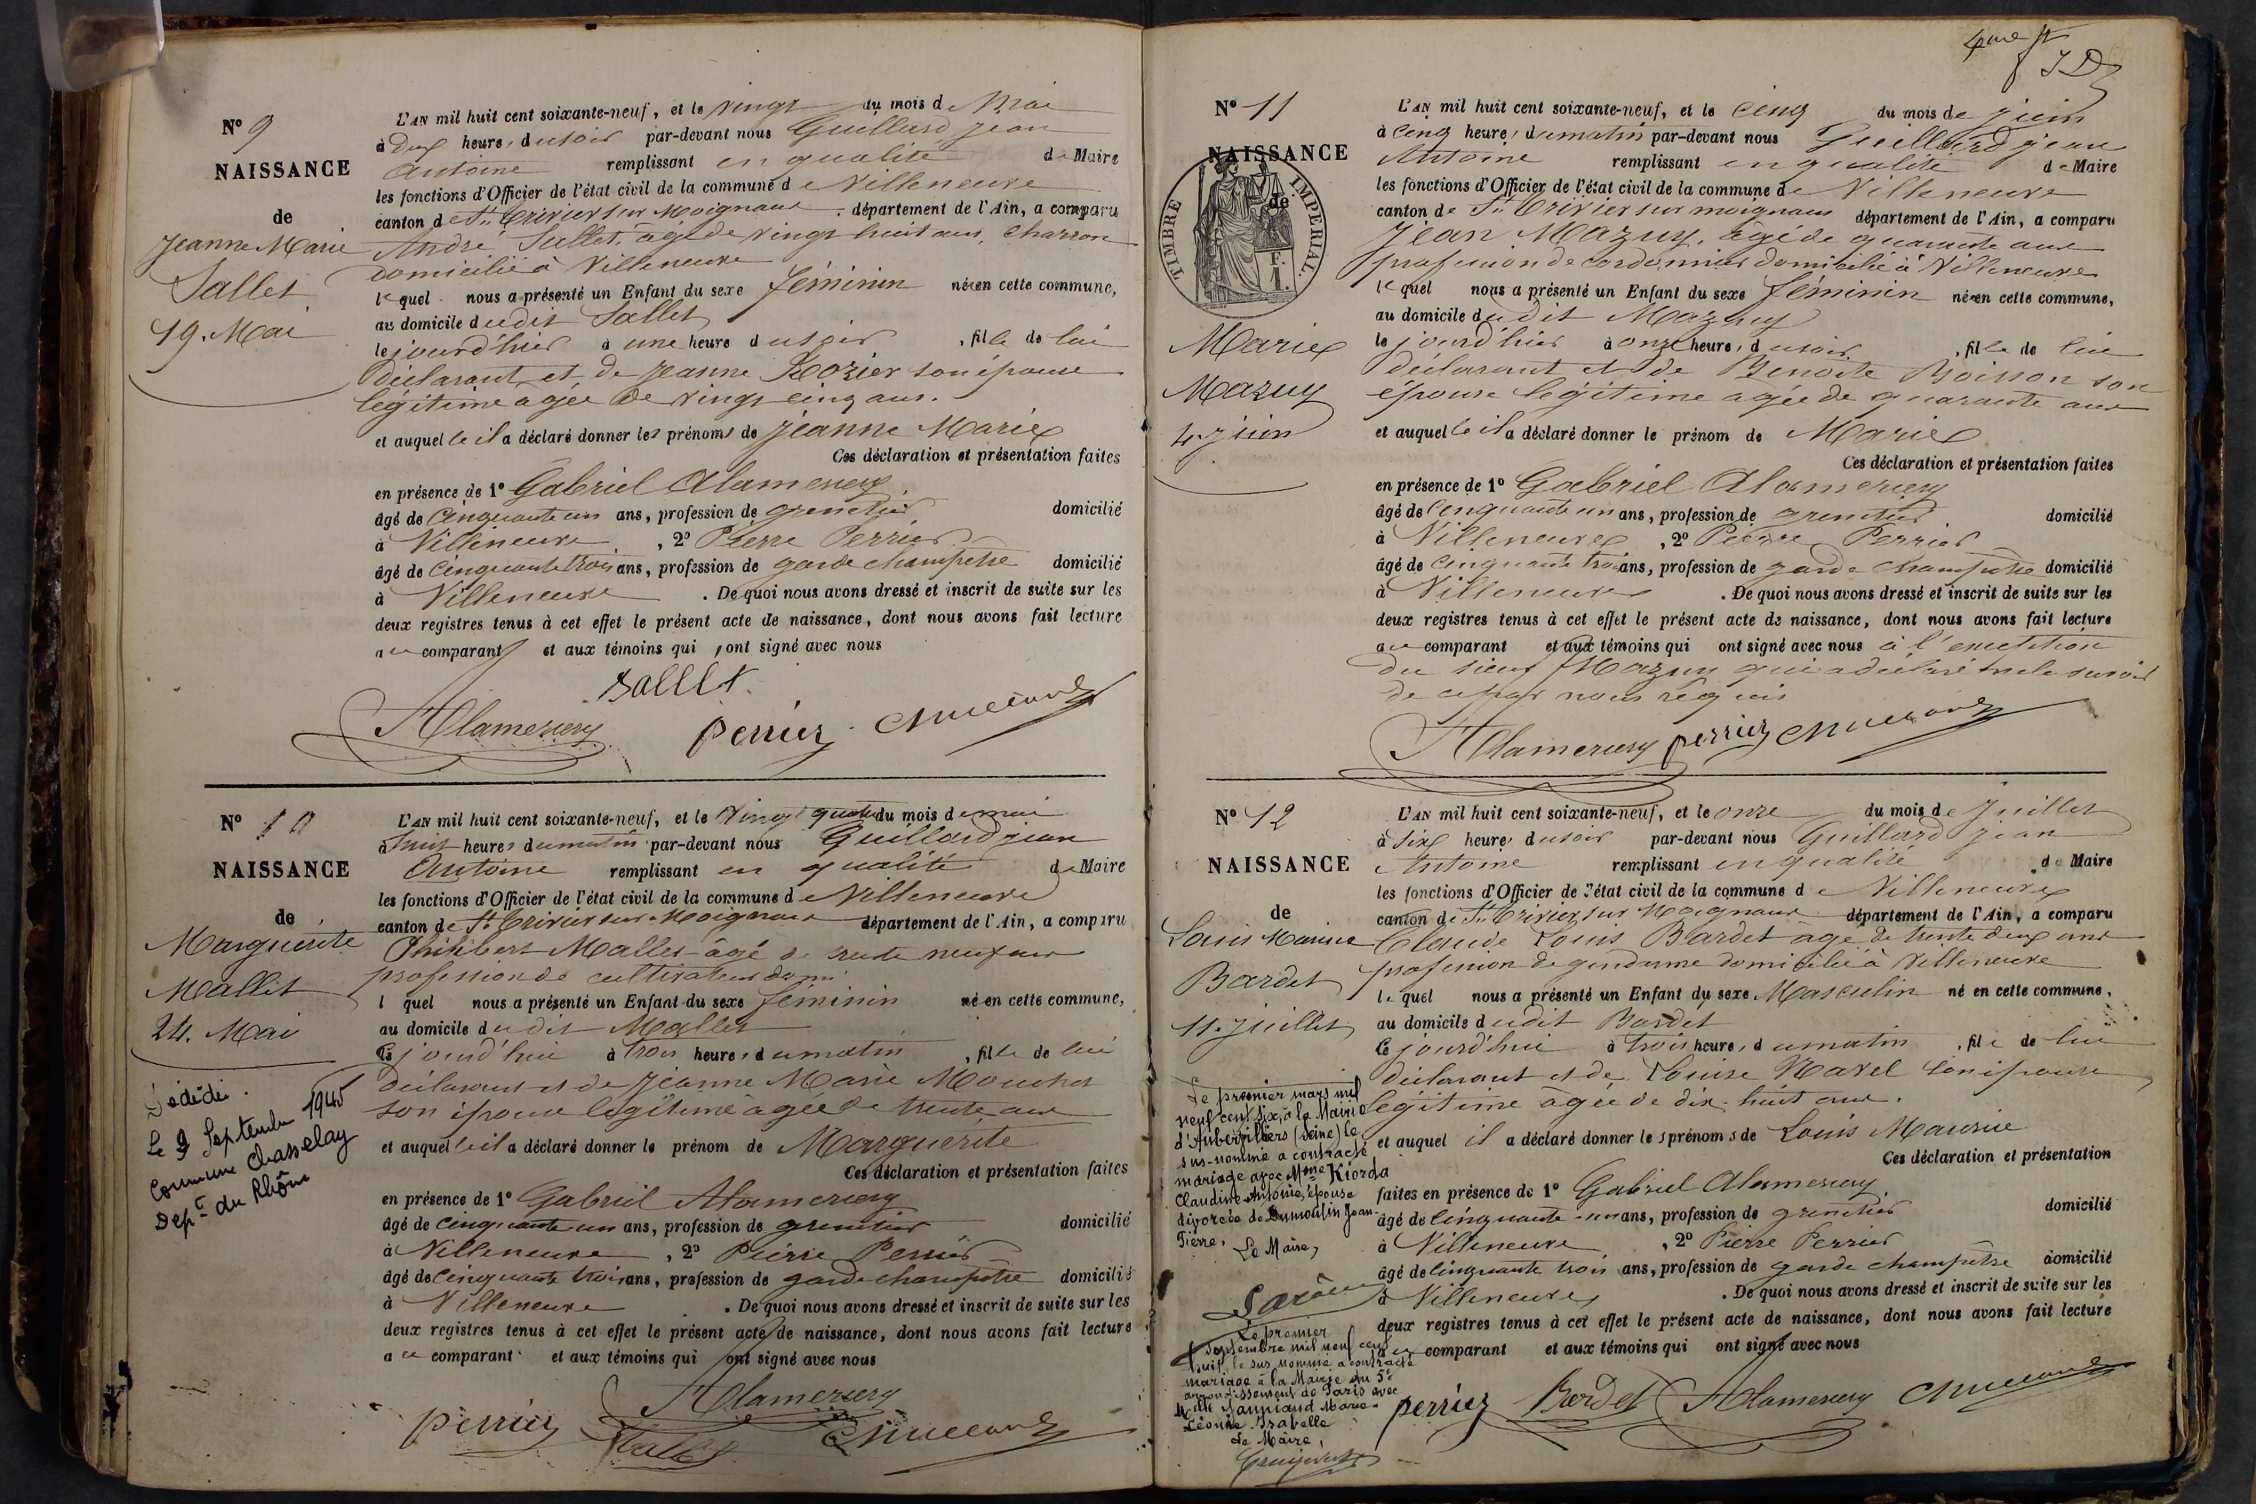 N° 9
NAISSANCE
de
Jeanne Marie
Sallet
19. Mai
L'AN mil huit cent soixante-neuf, et le vingt du mois de Mai
à deux heures du soir par-devant nous Guillard Jean
Antoine remplissant en qualité de Maire
les fonctions d'Officier de l'état civil de la commune de Villeneuve
canton de St. Trivier sur Moignans. département de l'Ain, a comparu
André Sallet, âgé de vingt huit ans, charron
domicilié à Villeneuve
lequel nous a présenté un Enfant du sexe féminin née en cette commune,
au domicile dudit Sallet
le jourd'hier à une heure du soir, fille de lui
déclarant, et de Jeanne Rozier son épouse
légitime agée de vingt cinq ans.
et auquelle il a déclaré donner les prénoms de Jeanne Marie
Ces déclaration et présentation faites
en présence de 1° Gabriel Alamercery
âgé de cinquante un ans, profession de grenetier domicilié
à Villeneuve, 2° Pierre Perrier
âgé de cinquante trois ans, profession de garde champêtre domicilié
à Villeneuve. De quoi nous avons dressé et inscrit de suite sur les
deux registres tenus à cet effet le présent acte de naissance, dont nous avons fait lecture
au comparant et aux témoins qui ont signé avec nous
Sallet
Alamercery perrier
N° 10
NAISSANCE
de
Marguerite
Mallet
24. Mai
Décédée.
Le 9 Septembre 1945
Commune Chasselay
Dept du Rhône
L'AN mil huit cent soixante-neuf, et le vingt quatre du mois de mai
à huit heures du matin par-devant nous Guillard Jean
Antoine remplissant en qualité de Maire
les fonctions d'Officier de l'état civil de la commune de Villeneuve
canton de St. Trivier sur Moignans département de l'Ain, a comparu
Philibert Mallet âgé de trente neuf ans
profession de cultivateur domi
l quel nous a présenté un Enfant du sexe féminin né en cette commune,
au domicile dudit Mallet
le jourd'hui à trois heures du matin, fille de lui
déclarant et de Jeanne Marie Mouchet
son épouse légitime agée de trente ans
et auquelle il a déclaré donner le prénom de Marguerite
Ces déclaration et présentation faites
en présence de 1° Gabriel Alamercery
âgé de cinquante un ans, profession de grenetier domicilié
à Villeneuve, 2° Pierre Perrier
âgé de cinquante trois ans, profession de garde champêtre domicilié
à Villeneuve. De quoi nous avons dressé et inscrit de suite sur les
deux registres tenus à cet effet le présent acte de naissance, dont nous avons fait lecture
au comparant et aux témoins qui ont signé avec nous
Alamercery
perrier
Mallet
4me ft
JD
N° 11
NAISSANCE
de
TIMBRE IMPERIAL.
1 F.
Marie
Mazuy
4 Juin
L'AN mil huit cent soixante-neuf, et le cinq du mois de Juin
à cinq heures du matin par-devant nous Guillard Jean
Antoine remplissant en qualité de Maire
les fonctions d'Officier de l'état civil de la commune de Villeneuve
canton de St. Trivier sur moignans département de l'Ain, a comparu
Jean Mazuy, âgé de quarante ans
profession de cordonnier domicilié à Villeneuve
lequel nous a présenté un Enfant du sexe féminin née en cette commune,
au domicile dudit Mazuy
le jourd'hier à onze heures du soir, fille de lui
déclarant et de Benoite Boisson son
épouse légitime agée de quarante ans
et auquelle il a déclaré donner le prénom de Marie
Ces déclaration et présentation faites
en présence de 1° Gabriel Alamercery
âgé de cinquante un ans, profession de grenetier domicilié
à Villeneuve, 2° Pierre Perrier
âgé de cinquante trois ans, profession de garde champêtre domicilié
à Villeneuve. De quoi nous avons dressé et inscrit de suite sur les
deux registres tenus à cet effet le présent acte de naissance, dont nous avons fait lecture
au comparant et aux témoins qui ont signé avec nous à l'
du sieur Mazuy qui a déclaré ne le savoir
de ce par nous requis
Alamercery perrier
N° 12
NAISSANCE
de
Louis Maurice
Bardet
11. Juillet
Le premier mars mil
neuf cent six, à la Mairie
d'Aubervilliers (Seine) le
sus-nommé a contracté
mariage avec Mme Kiorda
Claudine Antonie, épouse
divorcée de Dumoulin Jean-
Pierre.
Le Maire,
Le premier
septembre mil neuf cent
huit, le sus nommé a contracté
mariage à la Mairie du 5e
arrondissement de Paris avec
Melle Marie-
Léonie Isabelle
Le Maire,
L'AN mil huit cent soixante-neuf, et le onze du mois de Juillet
à six heures du soir par-devant nous Guillard Jean
Antoine remplissant en qualité de Maire
les fonctions d'Officier de l'état civil de la commune de Villeneuve
canton de St. Trivier sur Moignans département de l'Ain, a comparu
Claude Louis Bardet agé de trente deux ans
profession de gendarme domicilié à Villeneuve
lequel nous a présenté un Enfant du sexe Masculin né en cette commune,
au domicile dudit Bardet
le jourd'hui à trois heures du matin, fils de lui
déclarant et de Louise Navel son épouse
légitime âgée de dix-huit ans.
et auquel il a déclaré donner les prénoms de Louis Maurice
Ces déclaration et présentation
faites en présence de 1° Gabriel Alamercery
âgé de cinquante-un ans, profession de grenetier domicilié
à Villeneuve, 2° Pierre Perrier
âgé de cinquante trois ans, profession de garde champêtre domicilié
à Villeneuve. De quoi nous avons dressé et inscrit de suite sur les
deux registres tenus à cet effet le présent acte de naissance, dont nous avons fait lecture
au comparant et aux témoins qui ont signé avec nous
perrier Bardet Alamercery